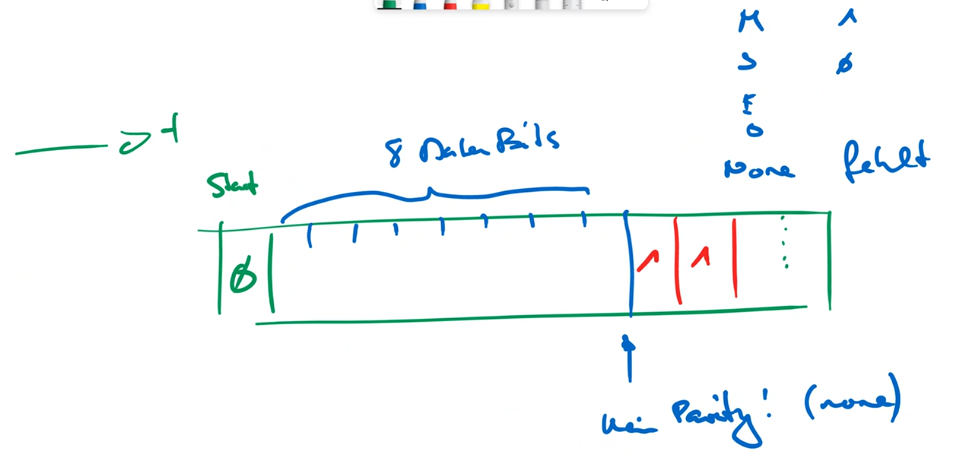 M 1
S Ø
E
O
None fehlt
t
8 Daten Bits
Start
Ø 1 1
kein Parity! (none)